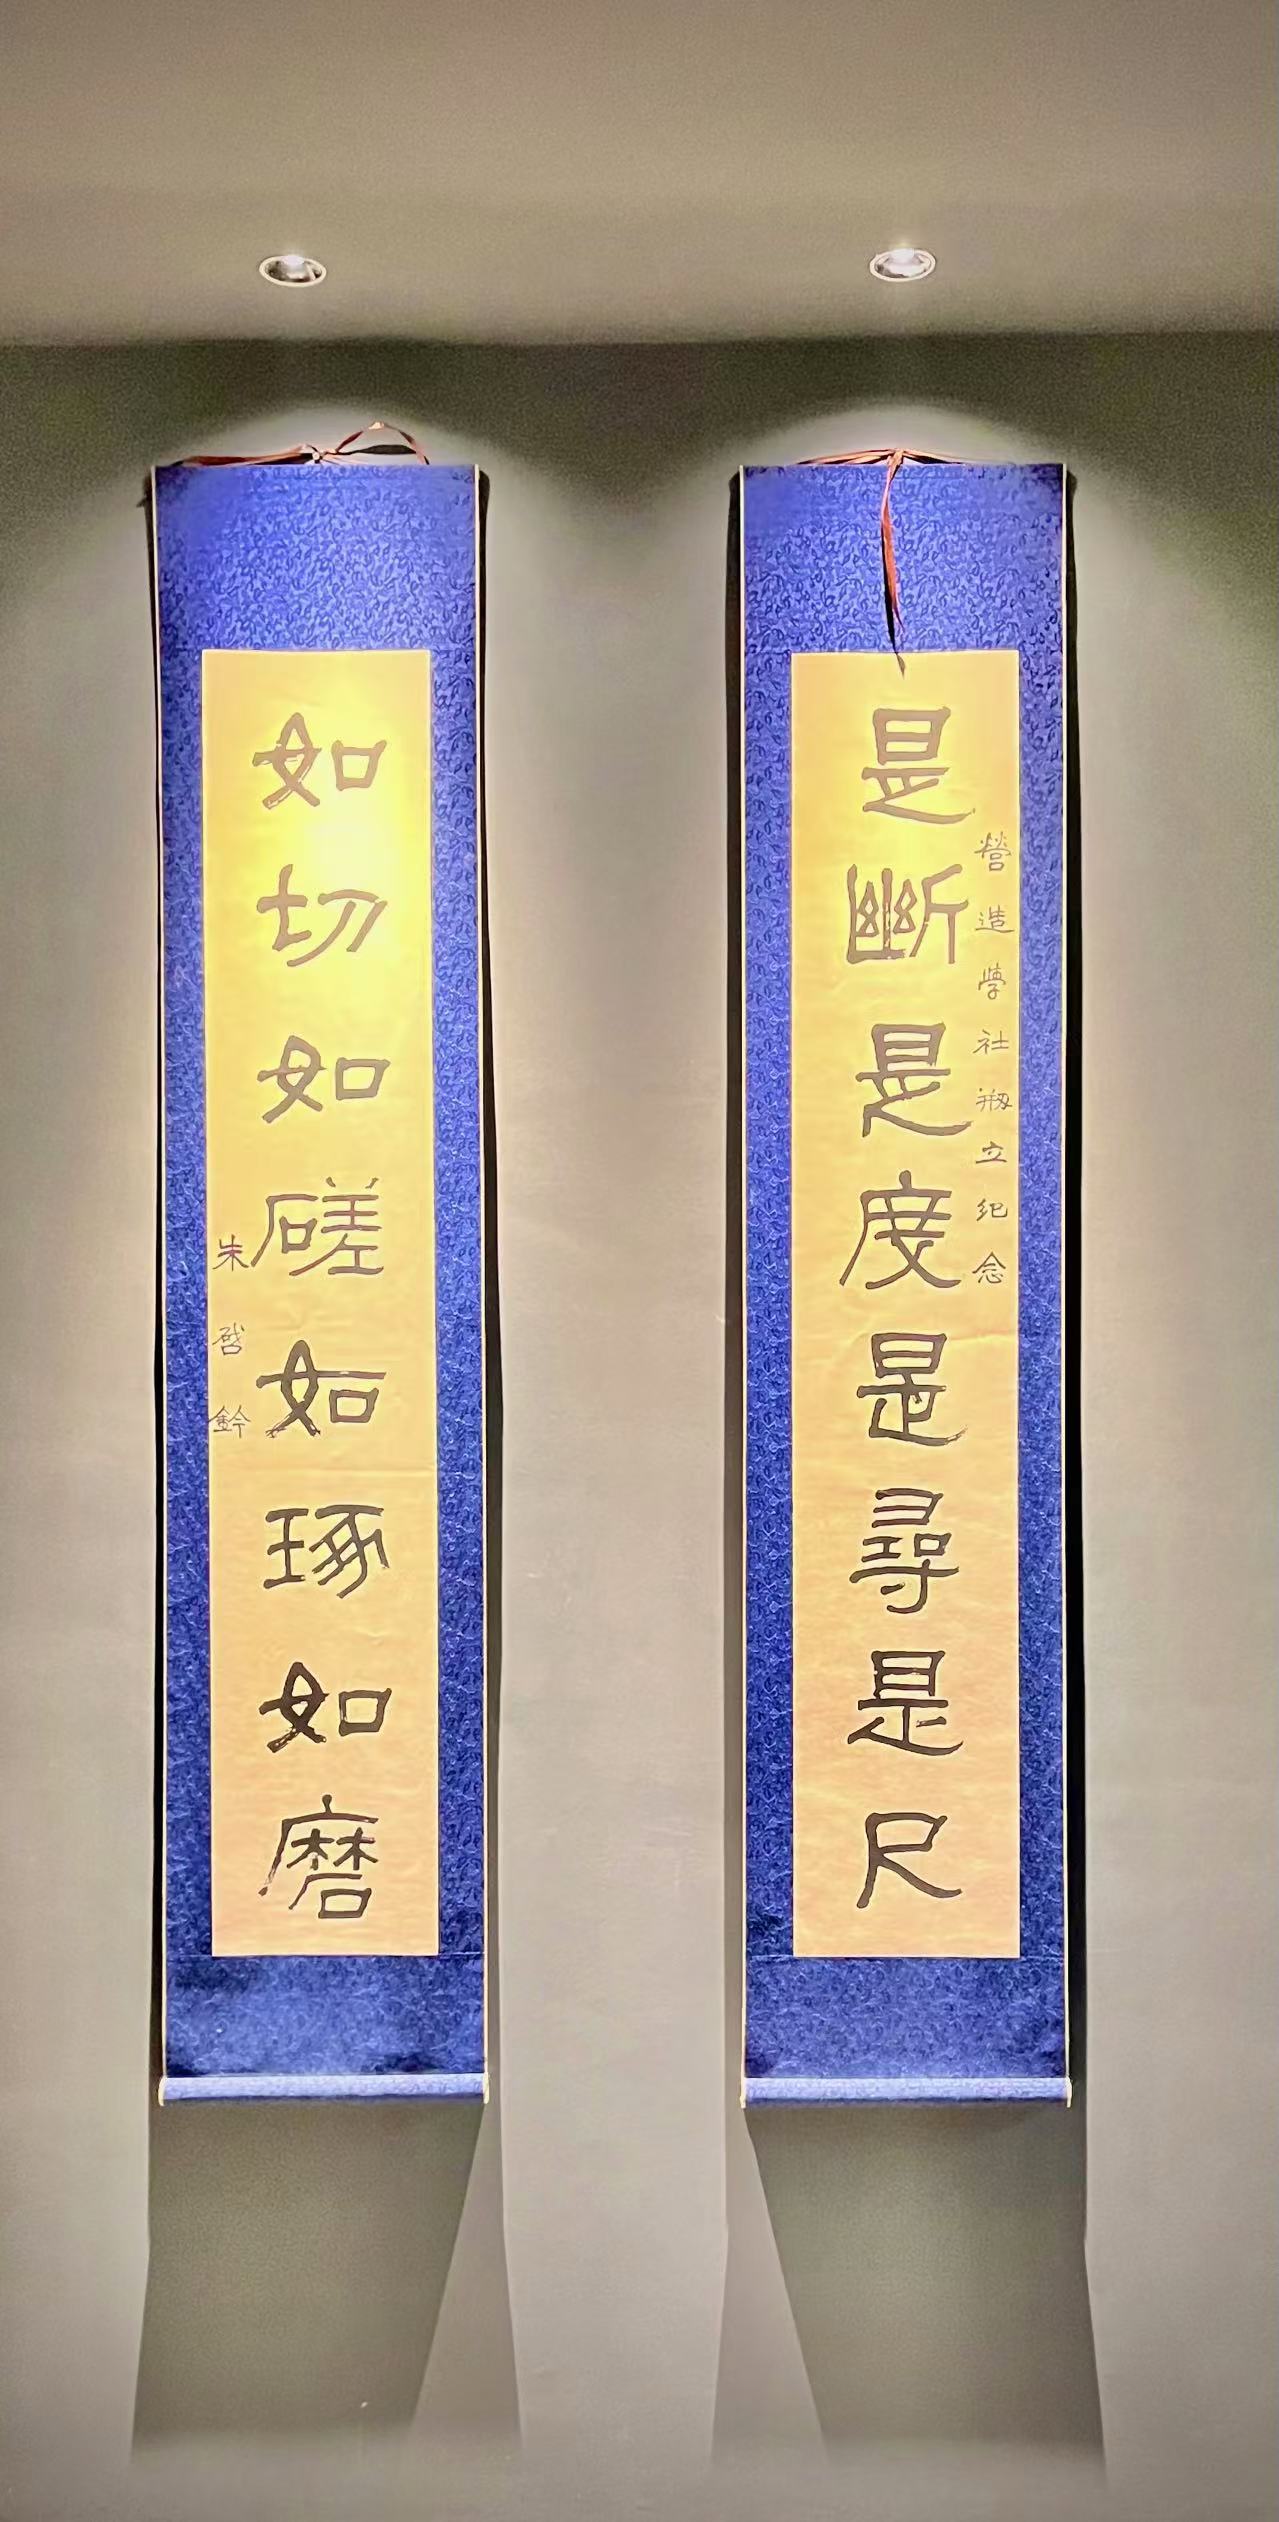 營造學社刱立紀念
是斷是度是尋是尺
如切如磋如琢如磨
朱啓鈐